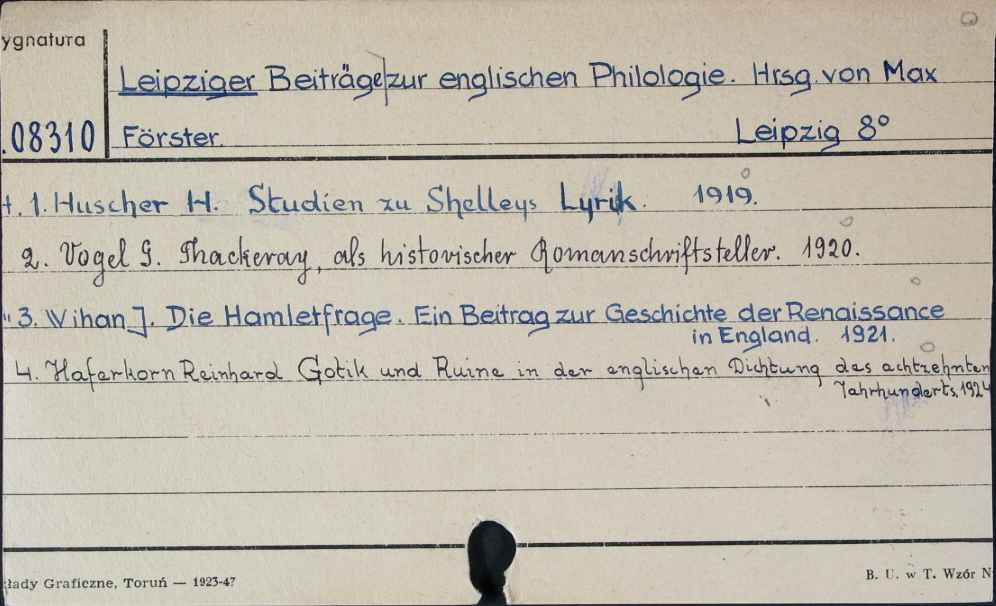 ygnatura
Leipziger Beiträge zur englischen Philologie. Hrsg. von Max
.08310 Förster. Leipzig 8°
t. 1. Huscher H. Studien zu Shelleys Lyrik. 1919.
2. Vogel G. Thackeray, als historischer Romanschriftsteller. 1920.
" 3. Wihan J. Die Hamletfrage. Ein Beitrag zur Geschichte der Renaissance
in England. 1921.
4. Haferkorn Reinhard Gotik und Ruine in der englischen Dichtung des achtzehnten
Jahrhunderts. 1924
kłady Graficzne, Toruń — 1923-47
B. U. w T. Wzór N